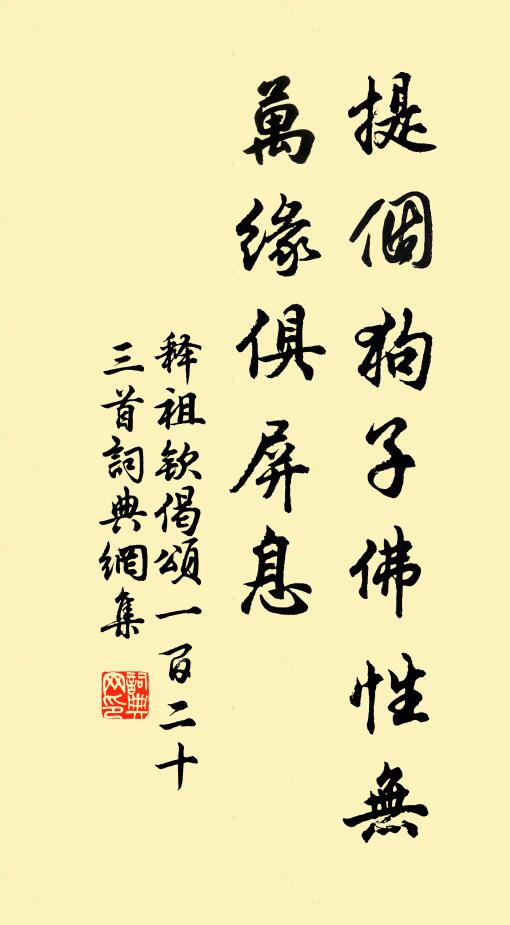 提個狗子佛性無
萬緣俱屏息
释祖欽偈頌一百二十
三首詞典網集
詞典網印